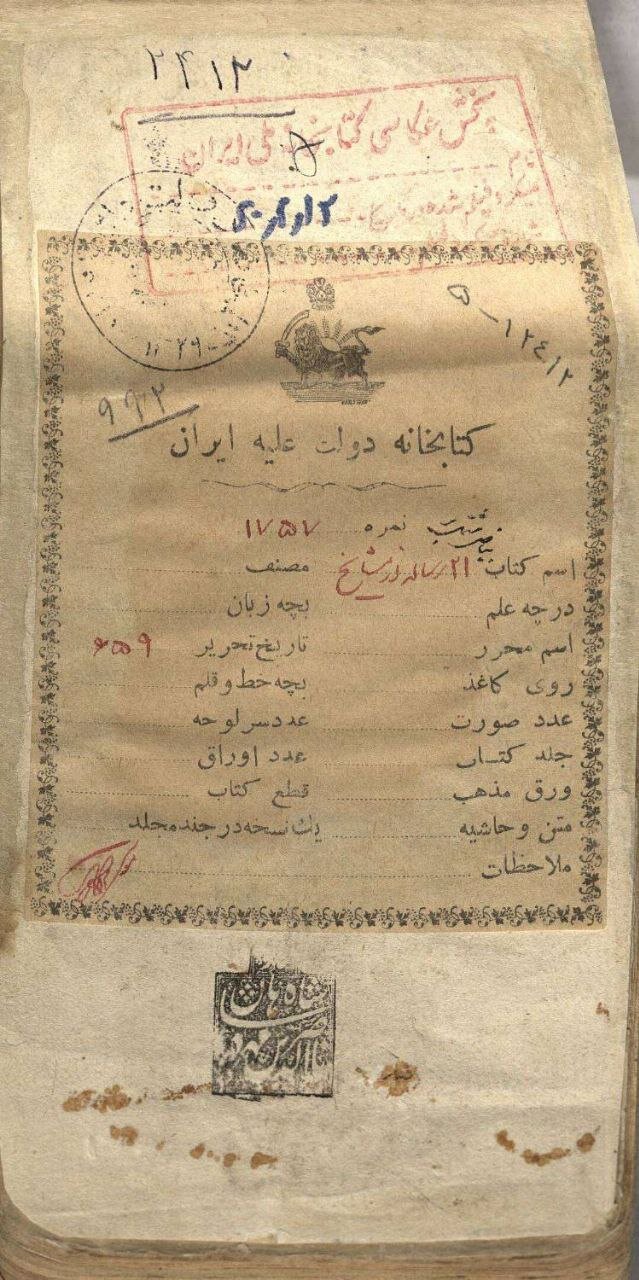 ۲۴۱۲
بخش عکاسی کتابخانه ملی ایران
۵ - ۱۲۴۱۲
۹۹۲
کتابخانه دولت علیه ایران
نمره ۱۷۵۷
اسم کتاب ۲۱ رساله از مشایخ مصنف
درچه علم بچه زبان
اسم محرر تاریخ تحریر ۶۵۹
روی کاغذ بچه خط و قلم
عدد صورت عدد سرلوحه
جلد کتاب عدد اوراق
ورق مذهب قطع کتاب
متن و حاشیه یک نسخه در چند مجلد
ملاحظات